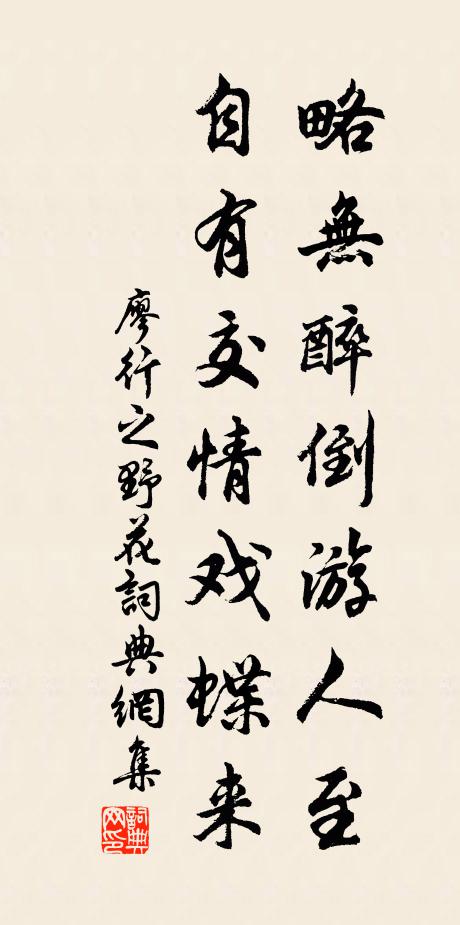 略無醉倒游人至
自有交情戏蝶来
廖行之野花詞典網集
詞典网印